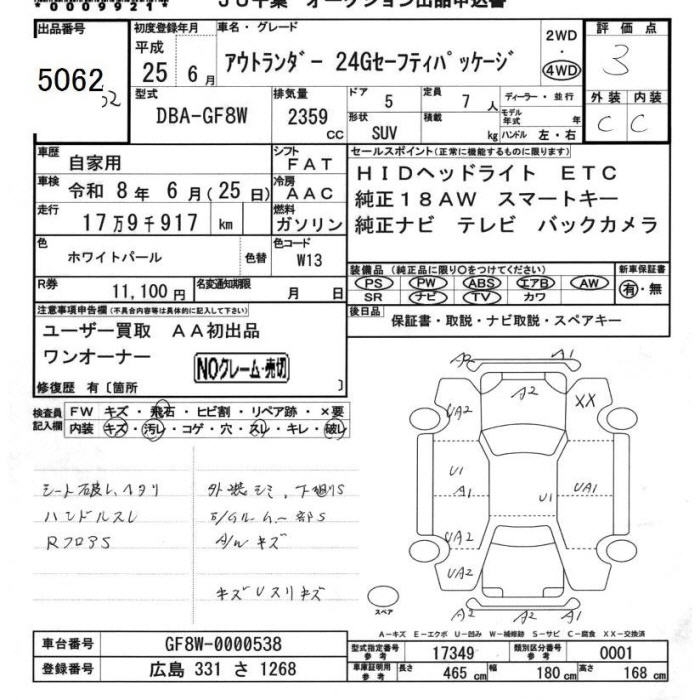 出品番号
5062
初度登録年月
平成
25 6月
車名・グレード
アウトランダー 24Gセーフティパッケージ
2WD
・
4WD
評価点
3
外装 内装
C C
型式
DBA-GF8W
排気量
2359
CC
ドア
5
定員
7人
形状
SUV
積載
kg
ディーラー・並行
モデル年式 年
ハンドル 左・右
車歴
自家用
シフト
FAT
車検
令和 8年 6月(25日)
冷房
AAC
走行
17万9千917 km
燃料
ガソリン
色
ホワイトパール
色替
色コード
W13
R券
11,100円
名変通知期限
月 日
セールスポイント(正常に機能するものに限ります)
HIDヘッドライト ETC
純正18AW スマートキー
純正ナビ テレビ バックカメラ
装備品(純正品に限り○をつけてください)
PS PW ABS エアB AW
SR ナビ TV カワ
新車保証書
有・無
後日品
保証書・取説・ナビ取説・スペアキー
注意事項申告欄(不具合内容等は具体的に記入して下さい)
ユーザー買取 AA初出品
ワンオーナー
NOクレーム・売切
修復歴 有〔箇所 〕
検査員記入欄
FW キズ・飛石・ヒビ割・リペア跡・×要
内装 キズ・汚レ・コゲ・穴・スレ・キレ・破レ
シート破レ、ヘタリ
ハンドルスレ
RフロアS
外装シミ、下廻りS
A/Wキズ
A2 A1
A2
UA2 XX
U1
A1 U1 UA1
UA2
UA2
A2 A2
スペア
A-キズ E-エクボ U-凹み W-補修跡 S-サビ C-腐食 XX-交換済
車台番号
GF8W-0000538
登録番号
広島 331 さ 1268
型式指定番号
参考
17349
類別区分番号
参考
0001
車庫証明用
参考
長さ
465 cm
幅
180 cm
高さ
168 cm